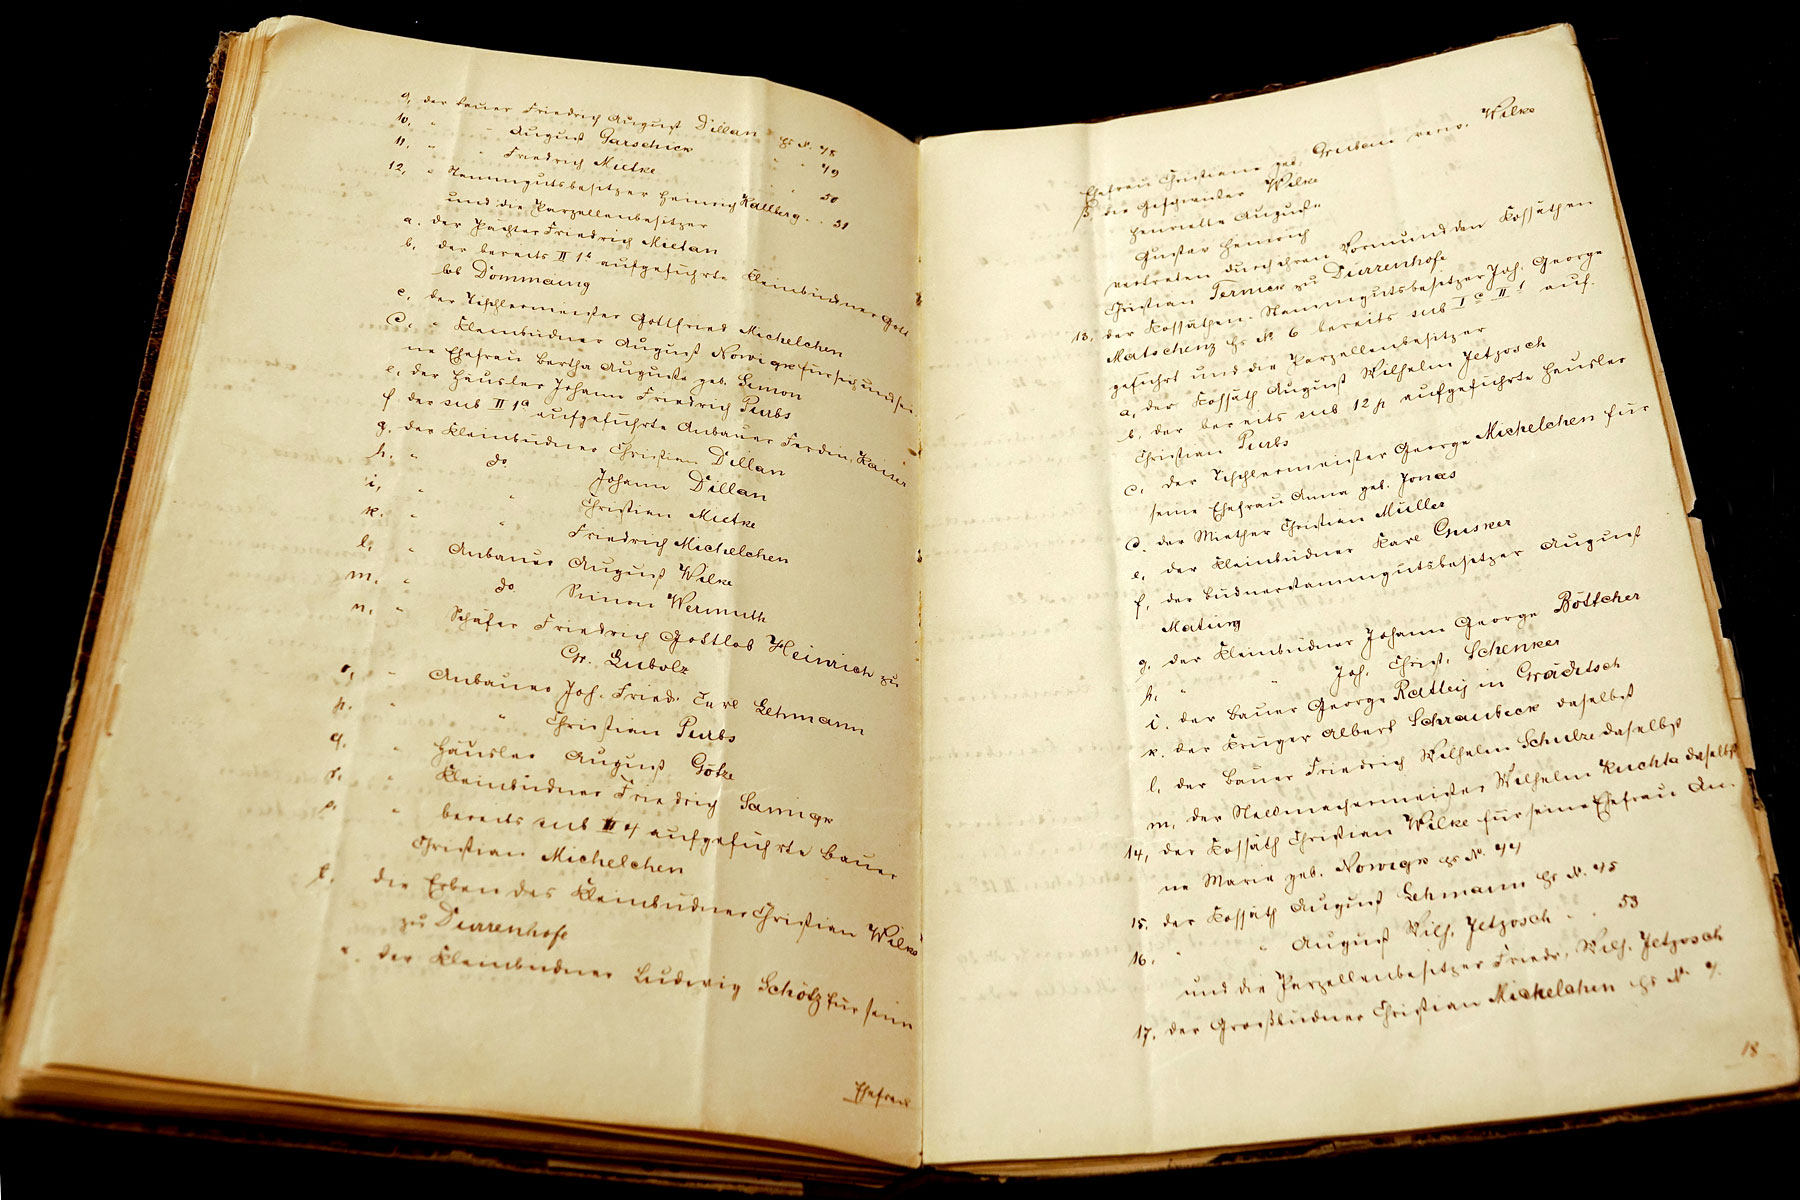 9, der Bauer Friedrich August Dillan Hs N. 48
10, " " August Garschick " " 49
11, " " Friedrich Mietke " 50
12, " Stammgutsbesitzer Heinrich Kallberg . . 51
und die Parzellenbesitzer
a. der Pächter Friedrich Mietan
b, der bereits II 1d aufgeführte Kleinbüdner Gott
lob Dommaing
c, der Tischlermeister Gottfried Michelchen
d, " Kleinbüdner August Nowigk für sich und sei
ne Ehefrau Bertha Auguste geb. Simon
e, der Häusler Johann Friedrich Purbs
f der sub II 1a aufgeführte Anbauer Ferdin. Kaiser
g, der Kleinbüdner Christian Dillan
h. " do Johann Dillan
i, " " Christian Mietke
k. " " Friedrich Michelchen
l, " Anbauer August Wilke
m. " do Simon Wermuth
n. " Schäfer Friedrich Gottlob Heinrich zu
Gr. Lubolz
o, " Anbauer Joh. Fried. Carl Lehmann
p. " " Christian Purbs
q. " Häusler August Götze
r. " Kleinbüdner Friedrich Sannigk
s. " bereits sub II 4 aufgeführte Bauer
Christian Michelchen
t. die Erben des Kleinbüdner Christian Wilke
zu Dürrenhofe
der Kleinbüdner Ludwig Schötz für sein
Ehefrau
Ehefrau Christiane geb. Gruban verw. Wilke
β die Geschwister Wilke
Henriette Auguste
Gustav Heinrich
vertreten durch ihren Vormund den Kossäthen
Christian Ternick zu Dürrenhofe
13, der Kossäthen-Stammgutsbesitzer Joh. George
Matschenz Hs No 6 bereits sub I c II f auf-
geführt und die Parzellenbesitzer
a, der Kossäth August Wilhelm Jetzosch
b, der bereits sub 12 p aufgeführte Häusler
Christian Purbs
c, der Tischlermeister George Michelchen für
seine Ehefrau Anna geb. Jonas
d. der Miether Christian Müller
e, der Kleinbüdner Karl Gusker
f, der Büdnerstammgutsbesitzer August
Mating
g, der Kleinbüdner Johann George Böttcher
h, " " Joh. Christ. Schenker
i. der Bauer George Ratley in Gräditsch
k. der Krüger Albert Schraubeck daselbst
l, der Bauer Friedrich Wilhelm Schulze daselbst
m, der Stellmachermeister Wilhelm Kuchta daselbst
14, der Kossäth Christian Wilke für seine Ehefrau An-
ne Marie geb. Nowigk Hs N. 44
15. der Kossäth August Lehmann Hs N. 45
16, " " August Wilh. Jetzosch . . 53
und die Parzellenbesitzer Friedr. Wilh. Jetzosch
17, der Großbüdner Christian Michelchen Hs N. 9.
18